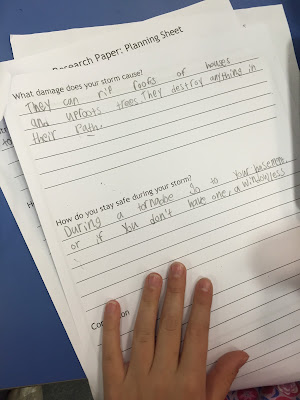 Research Paper: Planning Sheet
What damage does your storm cause?
They can rip roofs of houses
and uproots trees They destroy anything in
their path.
How do you stay safe during your storm?
During a tornadoe go to your basement
or if you don't have one, a windowless
Co